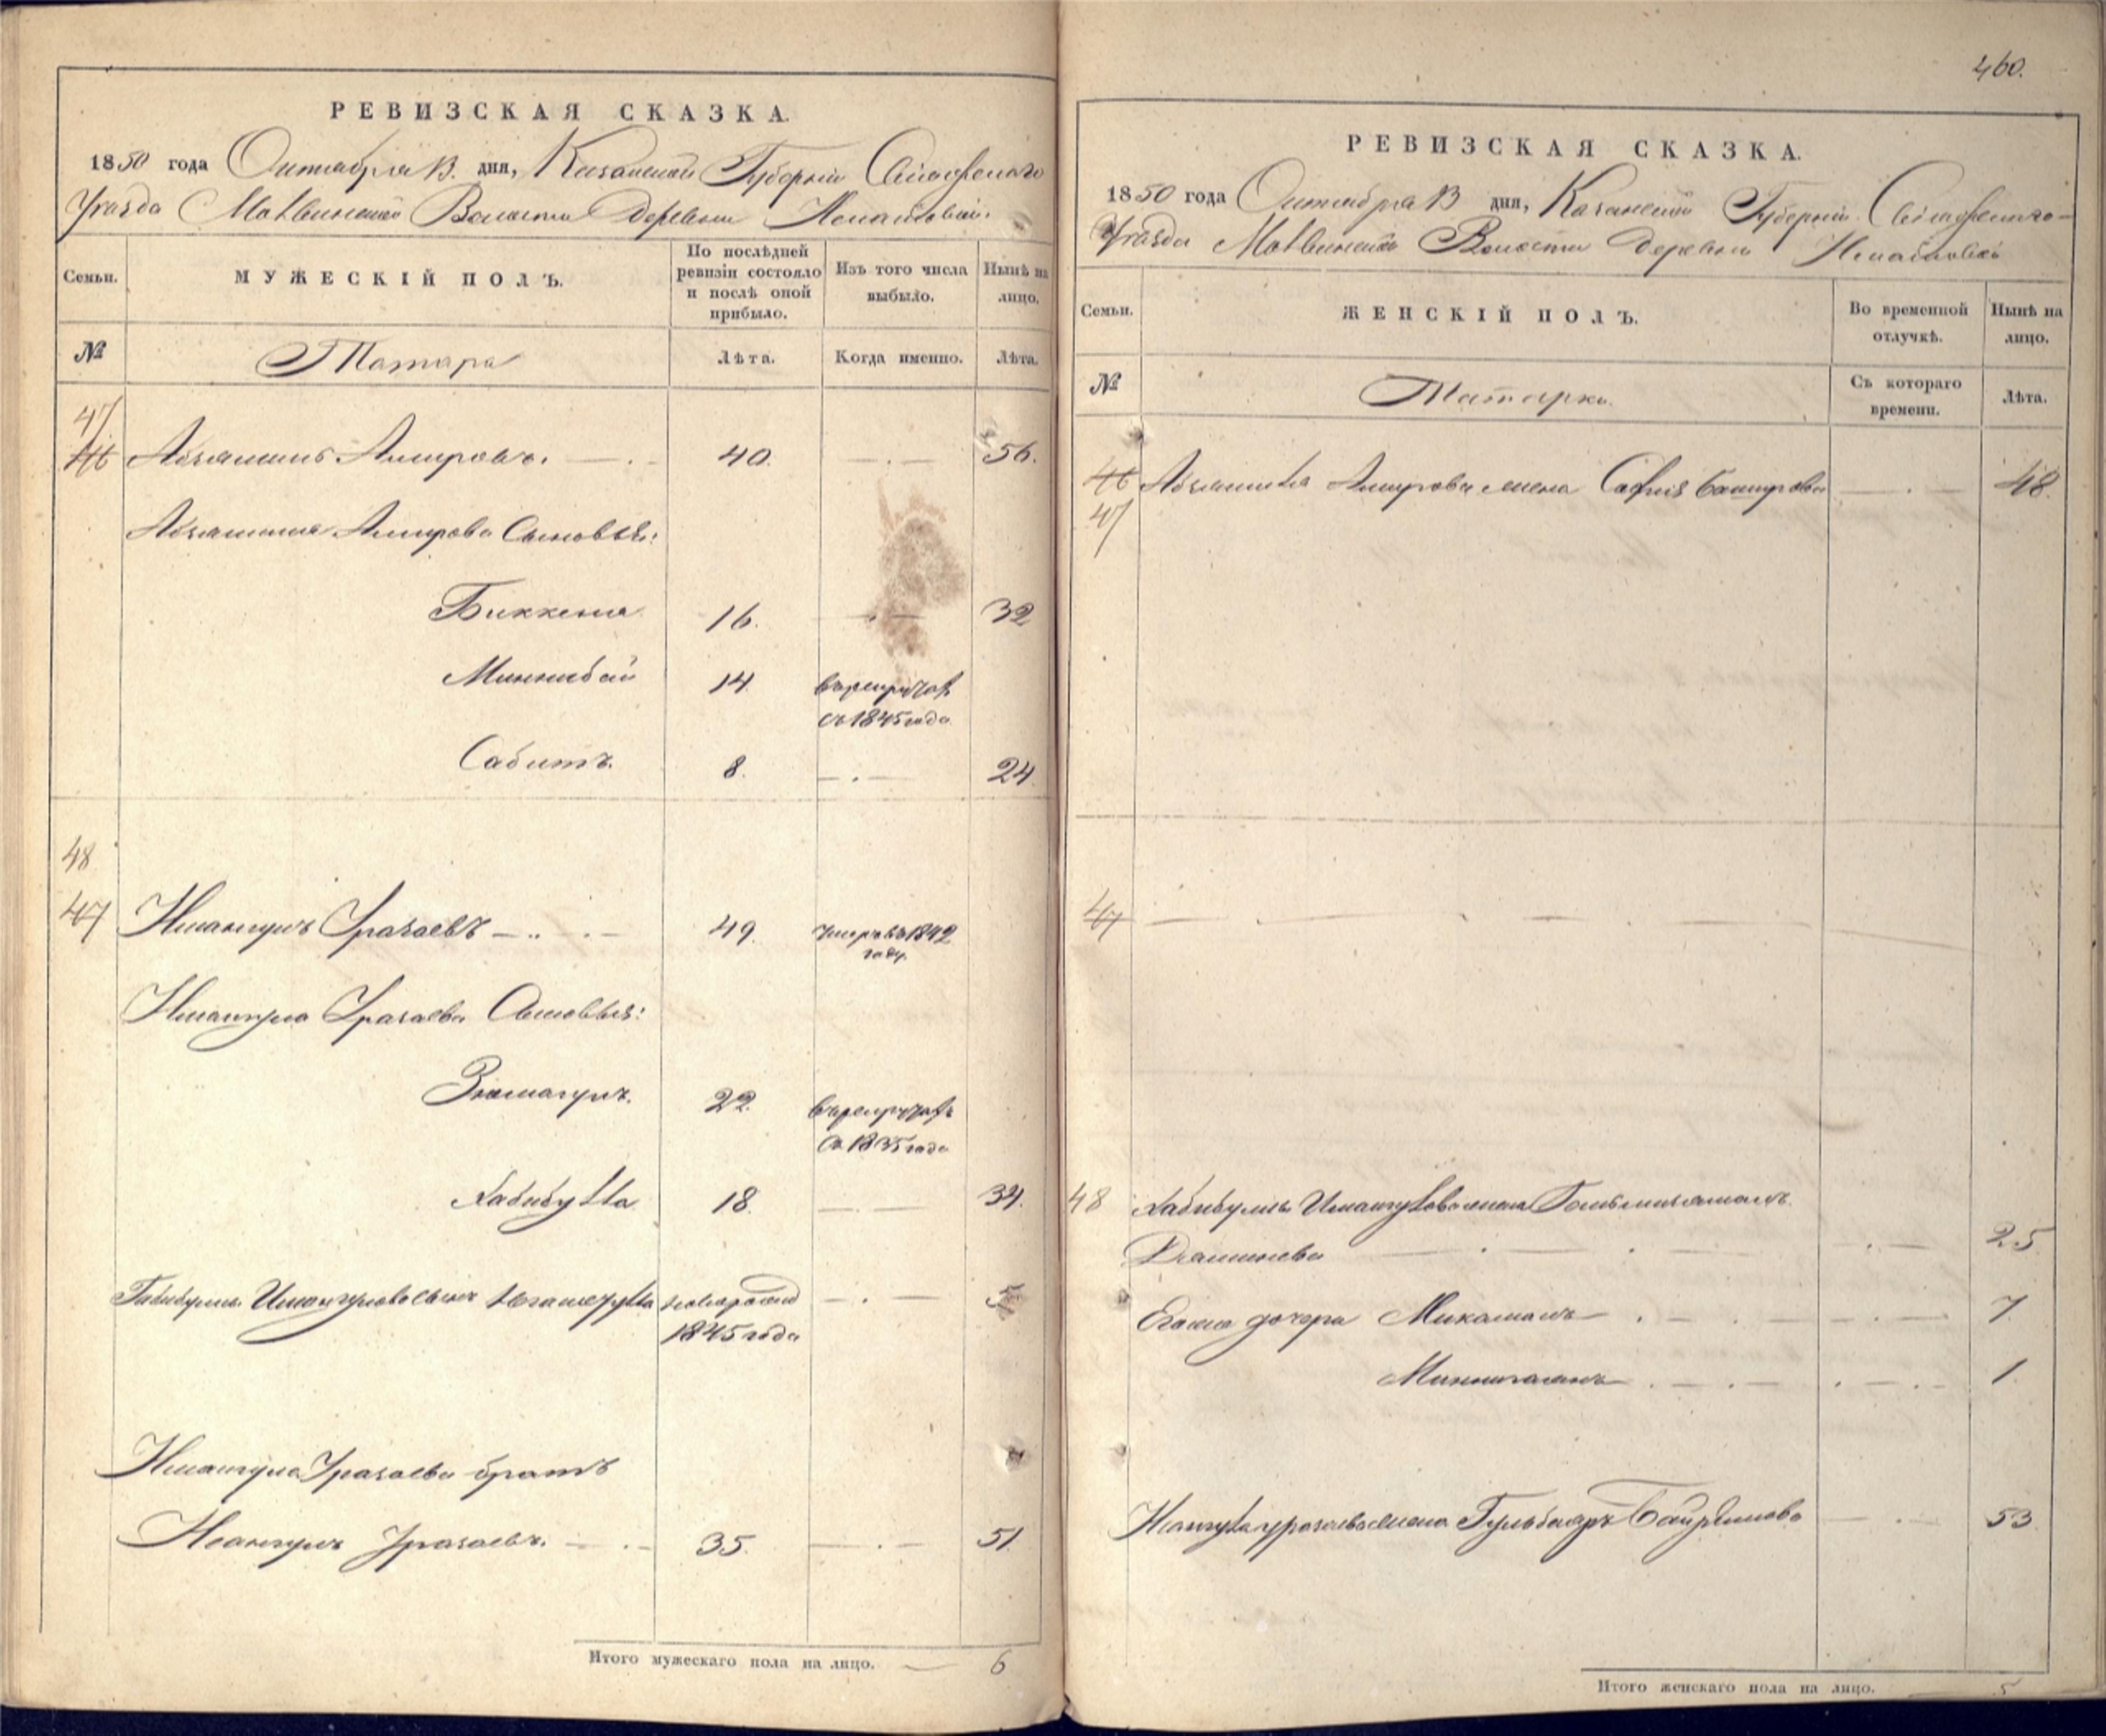 РЕВИЗСКАЯ СКАЗКА.
1850 года Октября 13. дня, Казанской Губернии Свіяжскаго
Уѣзда Волости Деревни
Семьи.
МУЖЕСКІЙ ПОЛЪ.
По послѣдней ревизіи состояло и послѣ оной прибыло.
Изъ того числа выбыло.
Нынѣ на лицо.
№
Татара
Лѣта.
Когда именно.
Лѣта.
47
46 Амировъ. 40. 56.
Амирова Сыновья:
Биккеня 16. 32
Миннибай 14. въ рекрутахъ
съ 1845 года
Сабитъ. 8. 24
48
47 Имангулъ Уразаевъ 49. умеръ въ 1842
году.
Имангула Уразаева Сыновья:
Зюмагулъ. 22. въ рекрутахъ
съ 1835 года
Хабибулла 18. 34.
Габибуллы Имангулова сынъ новорожд 5
1845 года
Имангула Уразаева братъ
Исангулъ Уразаевъ. 35. 51.
Итого мужескаго пола на лицо. 6
460.
РЕВИЗСКАЯ СКАЗКА.
1850 года Октября 13 дня, Казанской Губерніи Свіяжскаго
Уѣзда Волости Деревни
Семьи.
ЖЕНСКІЙ ПОЛЪ.
Во временной отлучкѣ.
Нынѣ на лицо.
№
Татарки.
Съ котораго времени.
Лѣта.
46 Амирова жена Сафія Баширова 48.
47
47
48 Хабибуллы Имангулова жена
25
Егожъ дочери 7.
1.
Исангула Уразаева жена Гульбаяръ 53
Итого женскаго пола на лицо. 5